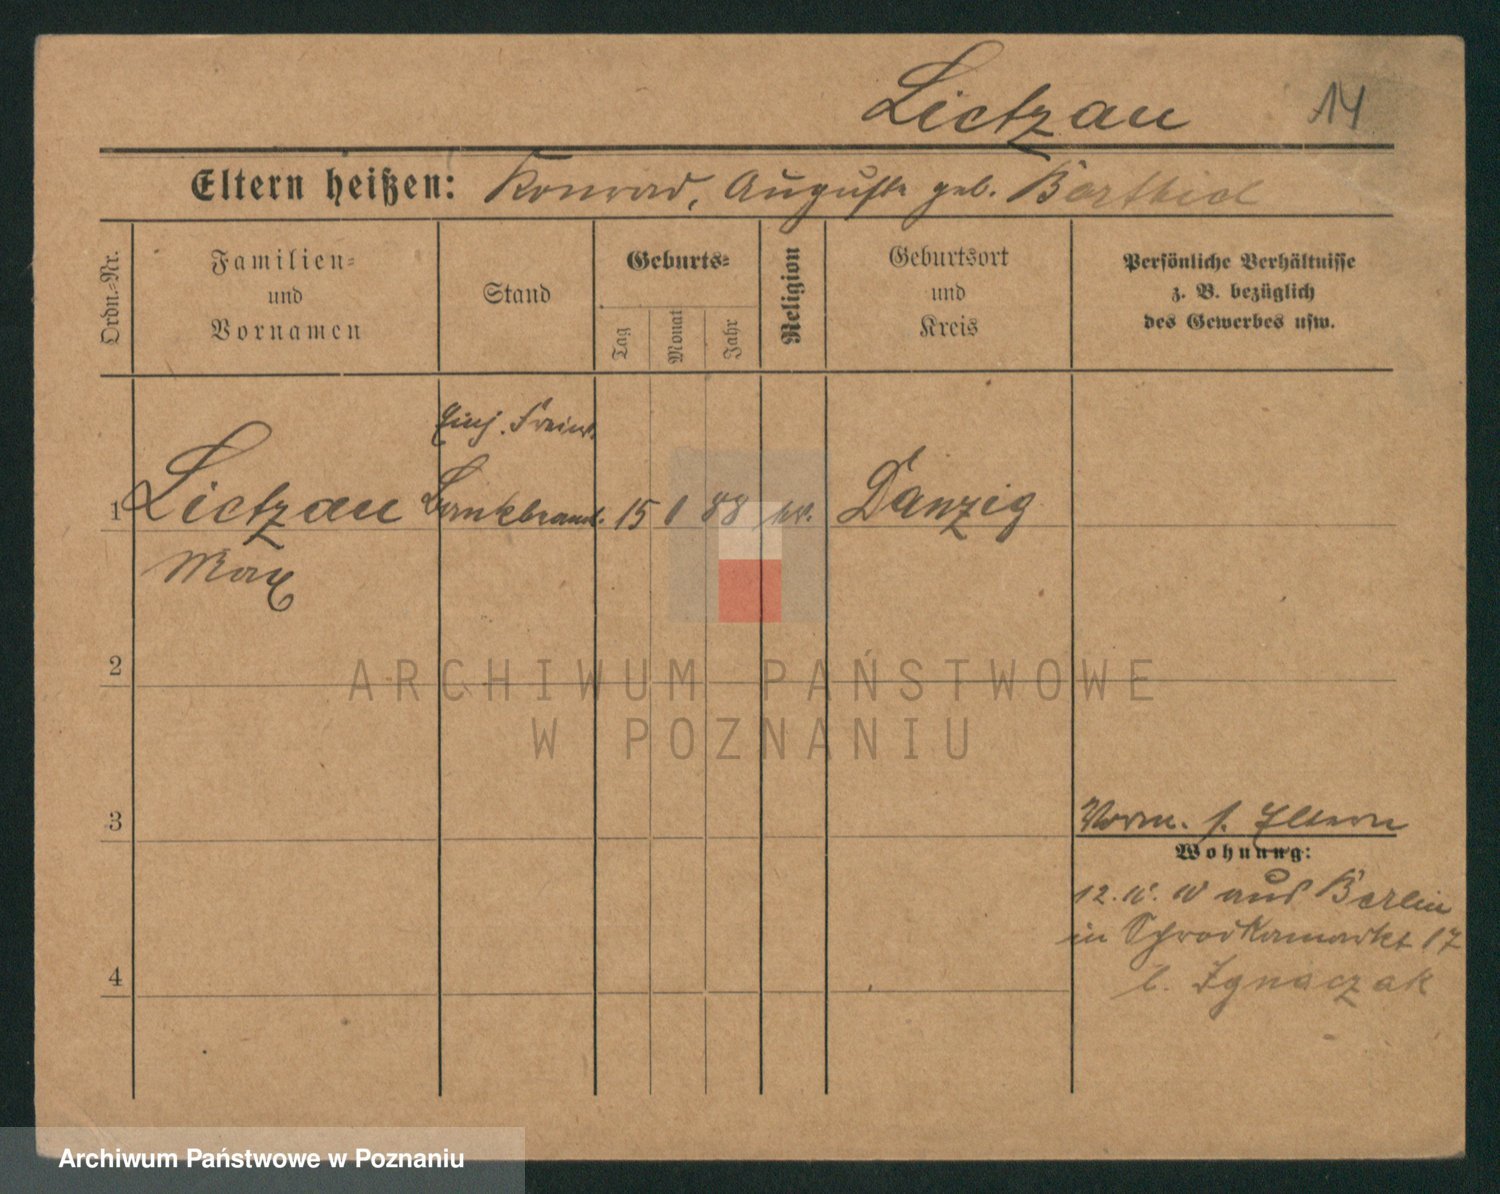 Lietzau 14
Eltern heißen: Konrad, Auguste geb.
Ordn.-Nr.
Familien-
und
Vornamen
Stand
Geburts-
Tag
Monat
Jahr
Religion
Geburtsort
und
Kreis
Persönliche Verhältnisse
z. B. bezüglich
des Gewerbes usw.
Einj. Freiw.
1 Lietzau Bankbeamt. 15 1 88 ev. Danzig
Max
2
3
4
Vorm. s. Eltern
Wohnung:
aus Berlin
in Schrodkamarkt 17
b. Ignaczak
ARCHIWUM PAŃSTWOWE
W POZNANIU
Archiwum Państwowe w Poznaniu